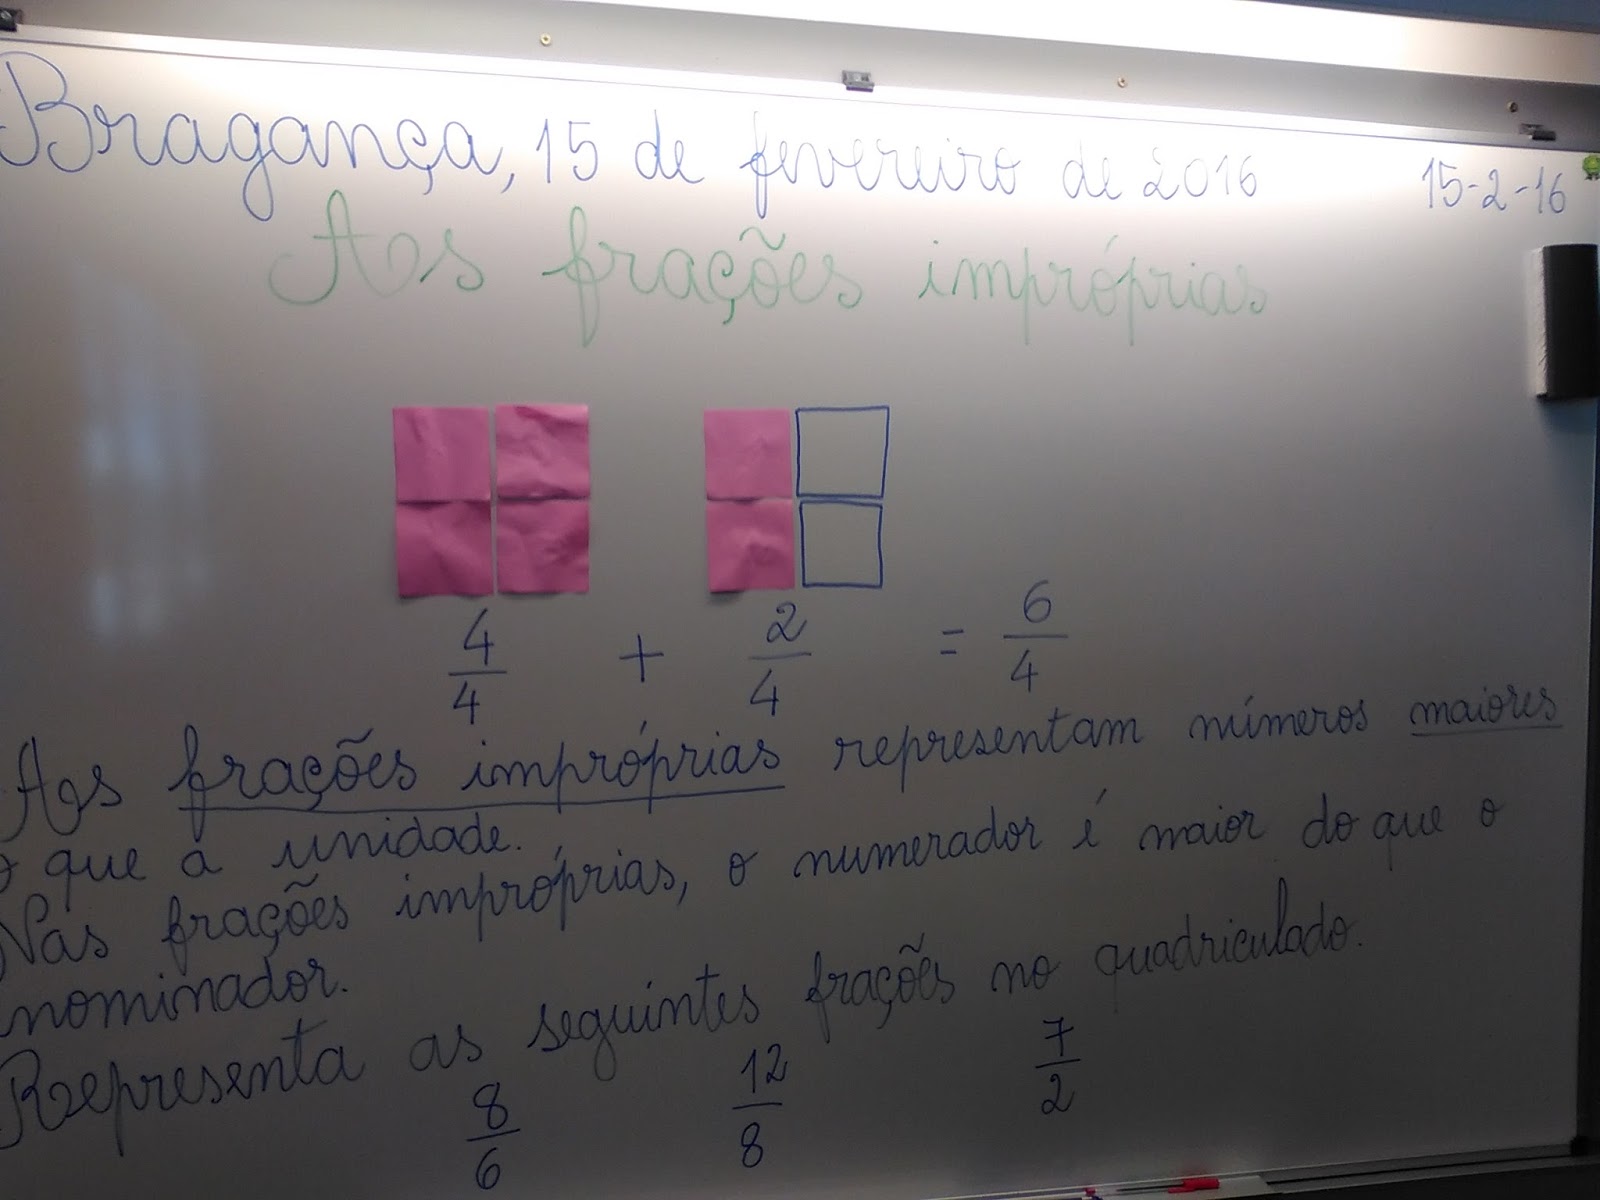 Bragança, 15 de fevereiro de 2016 15-2-16
As frações impróprias
4/4 + 2/4 = 6/4
As frações impróprias representam números maiores
o que a unidade.
Nas frações impróprias, o numerador é maior do que o
nominador.
Representa as seguintes frações no quadriculado.
8/6 12/8 7/2